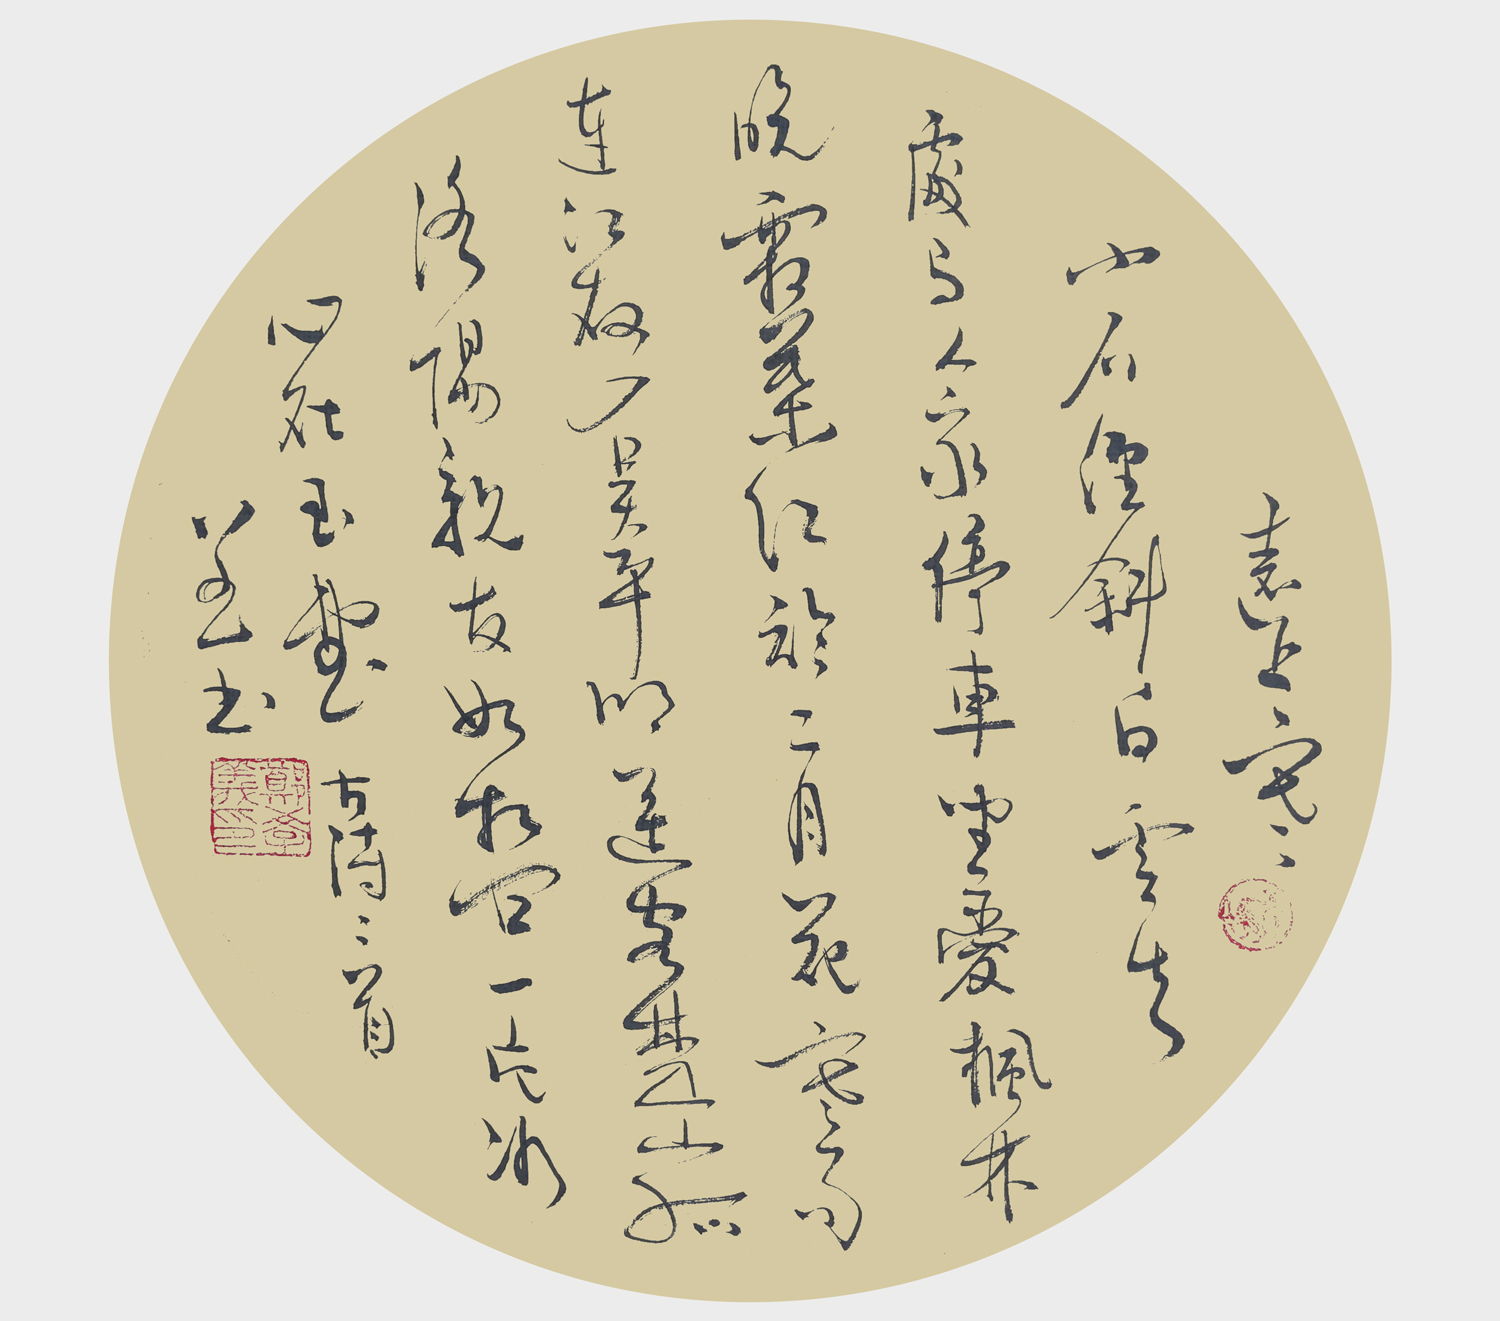 遠上寒
山石徑斜白雲生
處有人家停車坐愛楓林
晚霜葉紅於二月花寒雨
連江夜入吳平明送客楚山孤
洛陽親友如相問一片冰
心在玉壺
古詩二首
義書
鄭孝義印